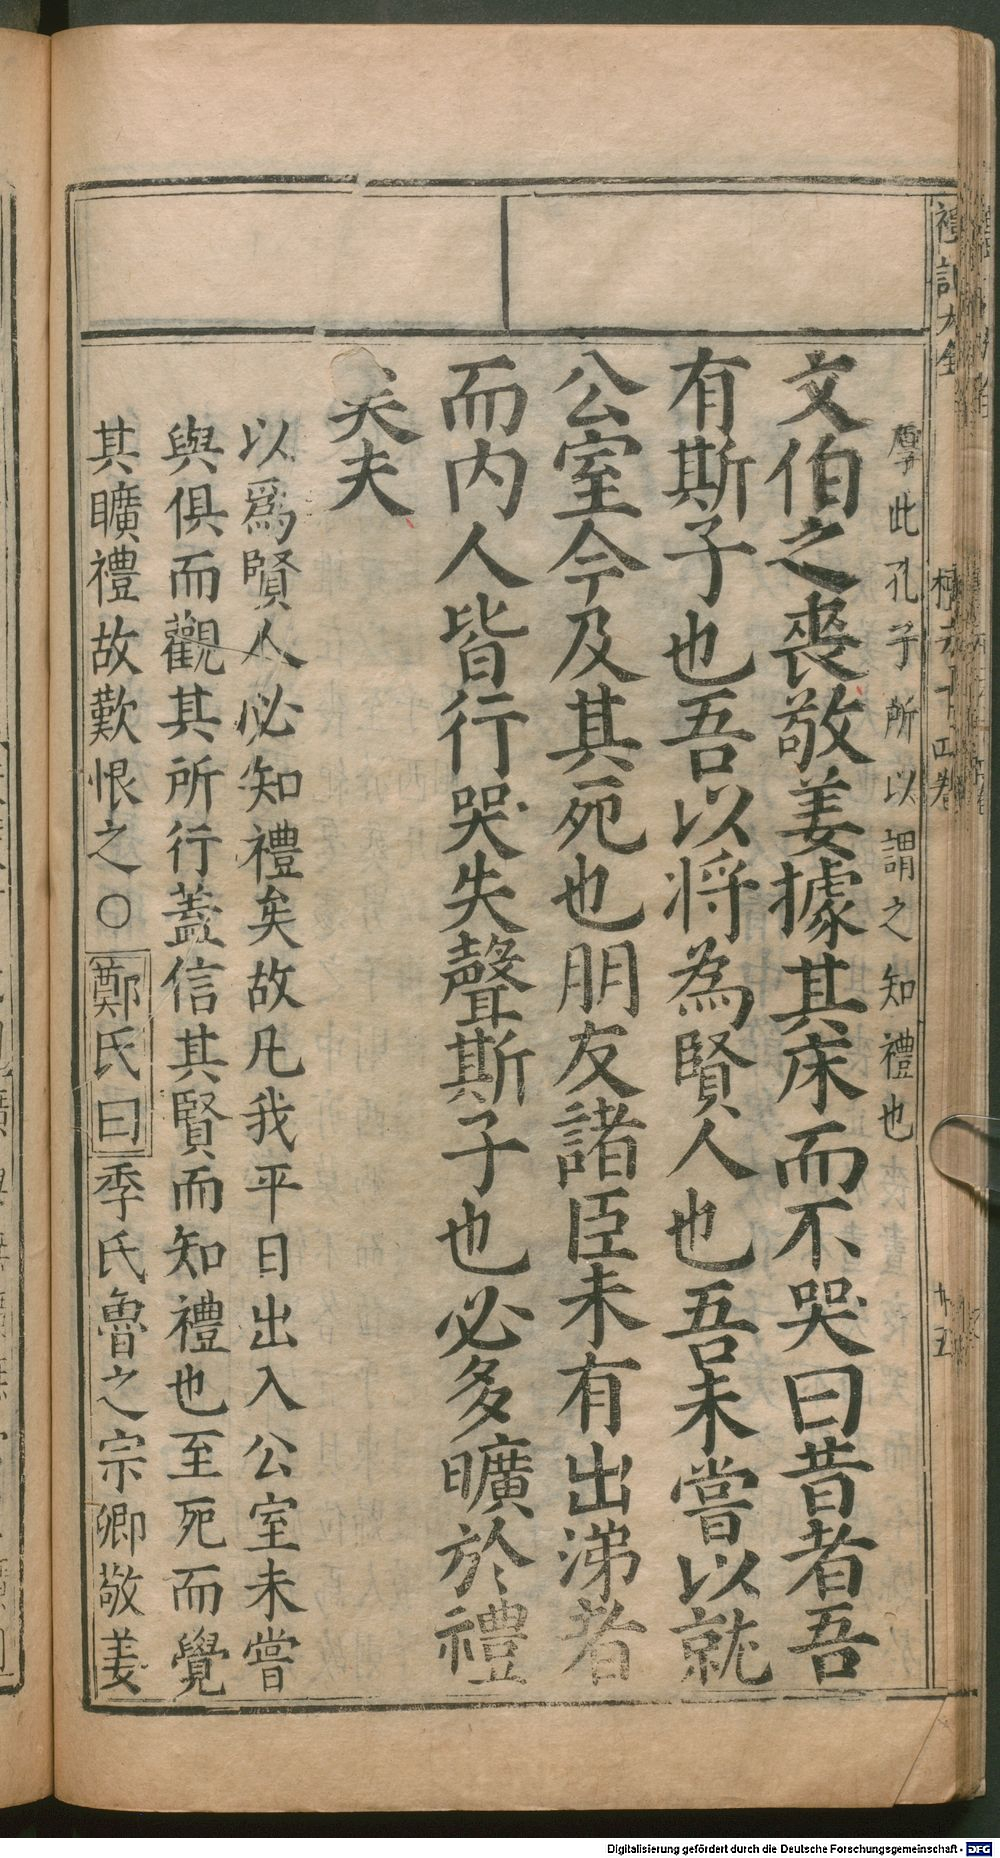 禮記大全
檀弓下四卷
廿五
辱此孔子所以謂之知禮也
文伯之喪敬姜據其床而不哭曰昔者吾
有斯子也吾以將為賢人也吾未嘗以就
公室今及其死也朋友諸臣未有出涕者
而內人皆行哭失聲斯子也必多曠於禮
矣夫
以爲賢人必知禮矣故凡我平日出入公室未嘗
與俱而觀其所行蓋信其賢而知禮也至死而覺
其曠禮故歎恨之○鄭氏曰季氏魯之宗卿敬姜
Digitalisierung gefördert durch die Deutsche Forschungsgemeinschaft - DFG